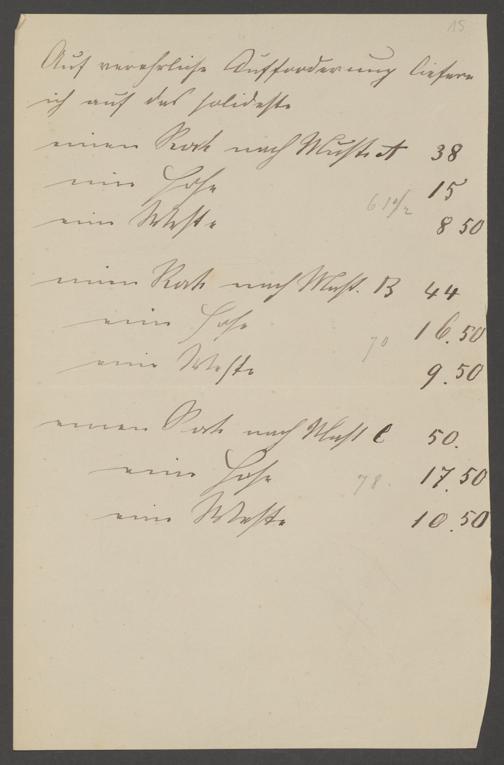 15
Auf verehrliche Aufforderung liefere
ich auf das solideste
einen Rock nach Must. A 38
eine Hose 15
61 1/2
eine Weste 8 50
einen Rock nach Must. B 44
eine Hose 16.50
70
eine Weste 9.50
einen Rock nach Must C 50.
eine Hose 78. 17.50
eine Weste 10.50